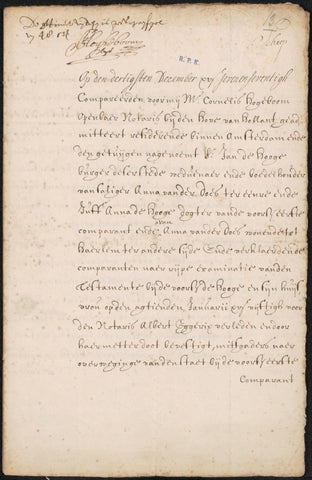 Op den dertigsten December xvj seven en seventigh
Compareerden voor mij Mr. Cornelis Hogeboom
Openbaer Notaris bij den Hove van Hollant gead-
mitteert residerende binnen Amsterdam ende
den getuijgen nagenoemt Sr. Jan de Hooge
burger deser stede weduenaer ende boedelhouder
van saliger Anna vander Does ter eenre ende
Juffr. Anna de Hooge dogter vande voorsz. eerste
comparant ende van Anna vander Does wonende tot
Haerlem ter andere sijde Ende verklaerden de
comparanten naer rijpe examinatie vanden
Testamente bij de voorsz. de Hooge en sijn huijs
vrou op den agtienden Januarij xvj vijftigh voor
den Notaris Albert Eggerix verleden en door
haer metter doot bevestigt, mitsgaders naer
overweginge vanden staet bij de voorsz. eerste
Comparant